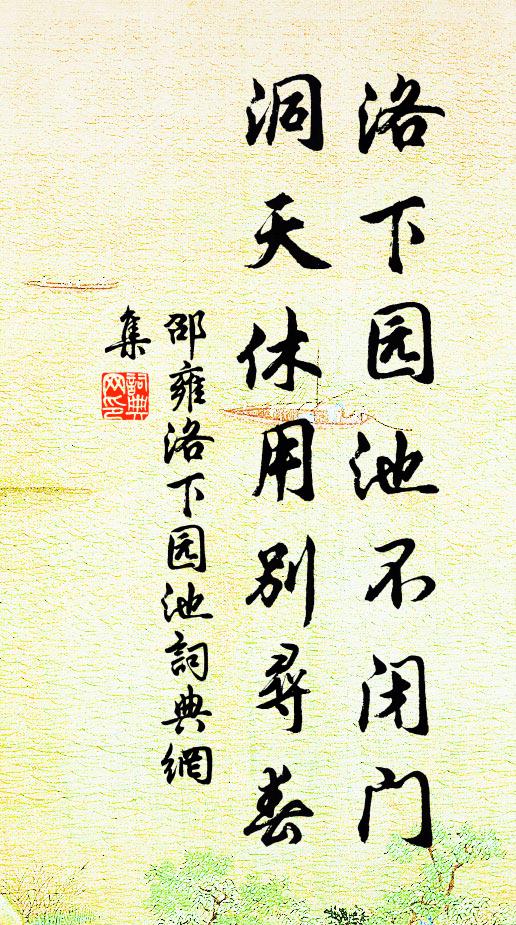 洛下园池不闭门
洞天休用别尋春
邵雍洛下园池詞典網
集
詞典
网印